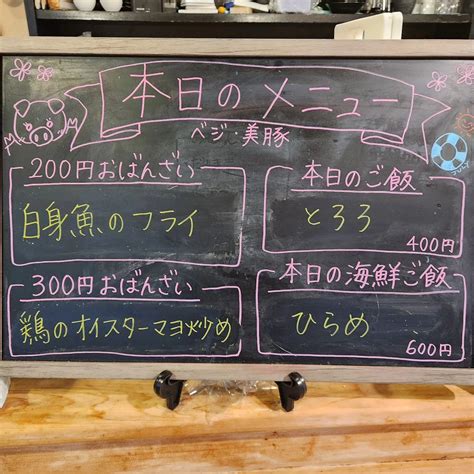 本日のメニュー
ベジ・美豚
200円おばんざい
白身魚のフライ
本日のご飯
とろろ
400円
300円おばんざい
鶏のオイスターマヨ炒め
本日の海鮮ご飯
ひらめ
600円
JULY